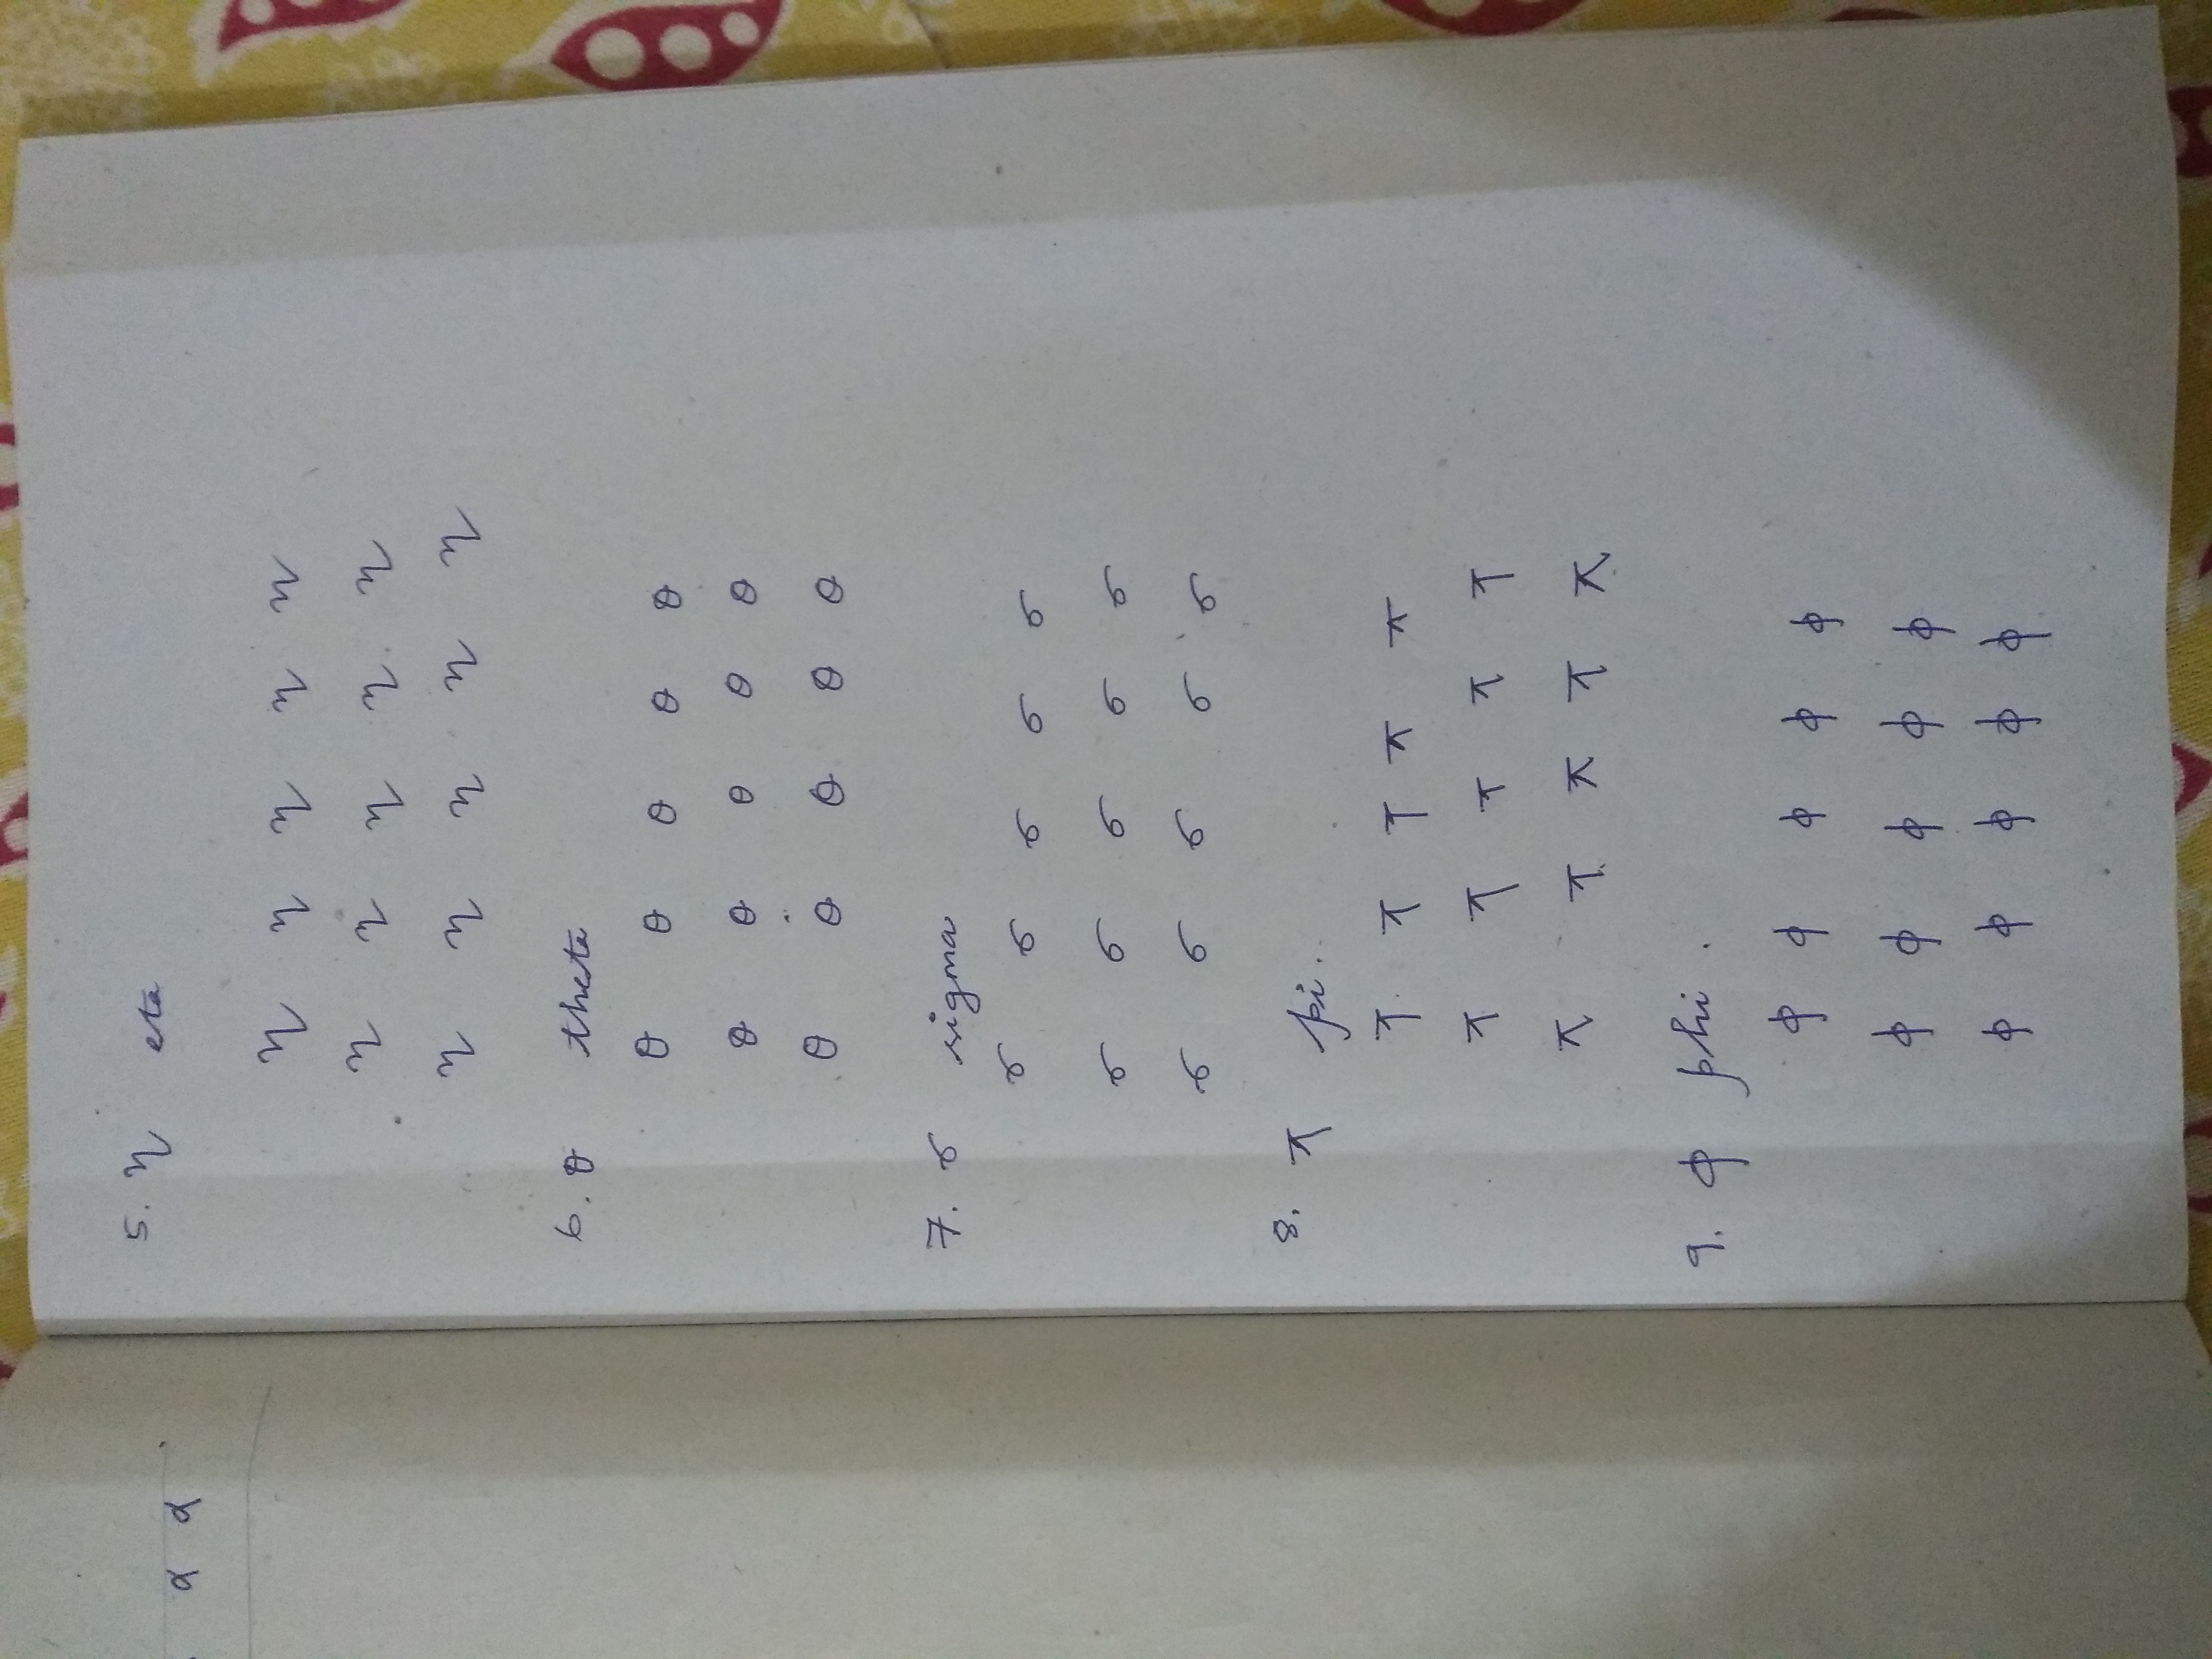 α α
5. η eta
η η η η η
η η η η η
η η η η η
6. θ theta
θ θ θ θ θ
θ θ θ θ θ
θ θ θ θ θ
7. σ sigma
σ σ σ σ σ
σ σ σ σ σ
σ σ σ σ σ
8. π pi.
π π π π π
π π π π π
π π π π π
9. ϕ phi.
ϕ ϕ ϕ ϕ ϕ
ϕ ϕ ϕ ϕ ϕ
ϕ ϕ ϕ ϕ ϕ